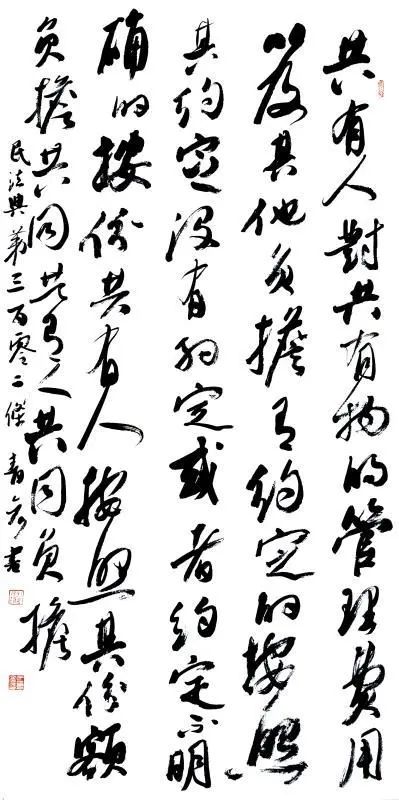 共有人對共有物的管理費用
以及其他負擔有約定的按照
其約定沒有約定或者約定不明
確的按份共有人按照其份額
負擔共同共有人共同負擔
民法典第三百零二條 青 書